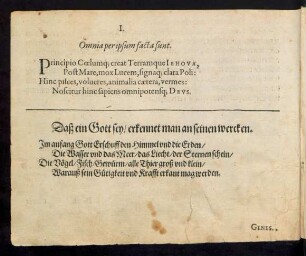 I.
Omnia per ipsum facta sunt.
Principio Cœlumq; creat Terramque IEHOVA,
Post Mare, mox Lucem, signaq; clara Poli:
Hinc pisces, volucres, animalia cætera, vermes:
Noscitur hinc sapiens omnipotensq; DEVS.
Daß ein Gott sey/ erkennet man an seinen wercken.
Im anfang Gott Erschuff den Himmel vnd die Erden/
Die Wasser vnd das Meer/ das Liecht/ der Sternen schein/
Die Vögel/ Fisch/ Gewürm/ alle Thier groß vnd klein/
Warauß sein Gütigkeit vnd Krafft erkant mag werden.
GENES.